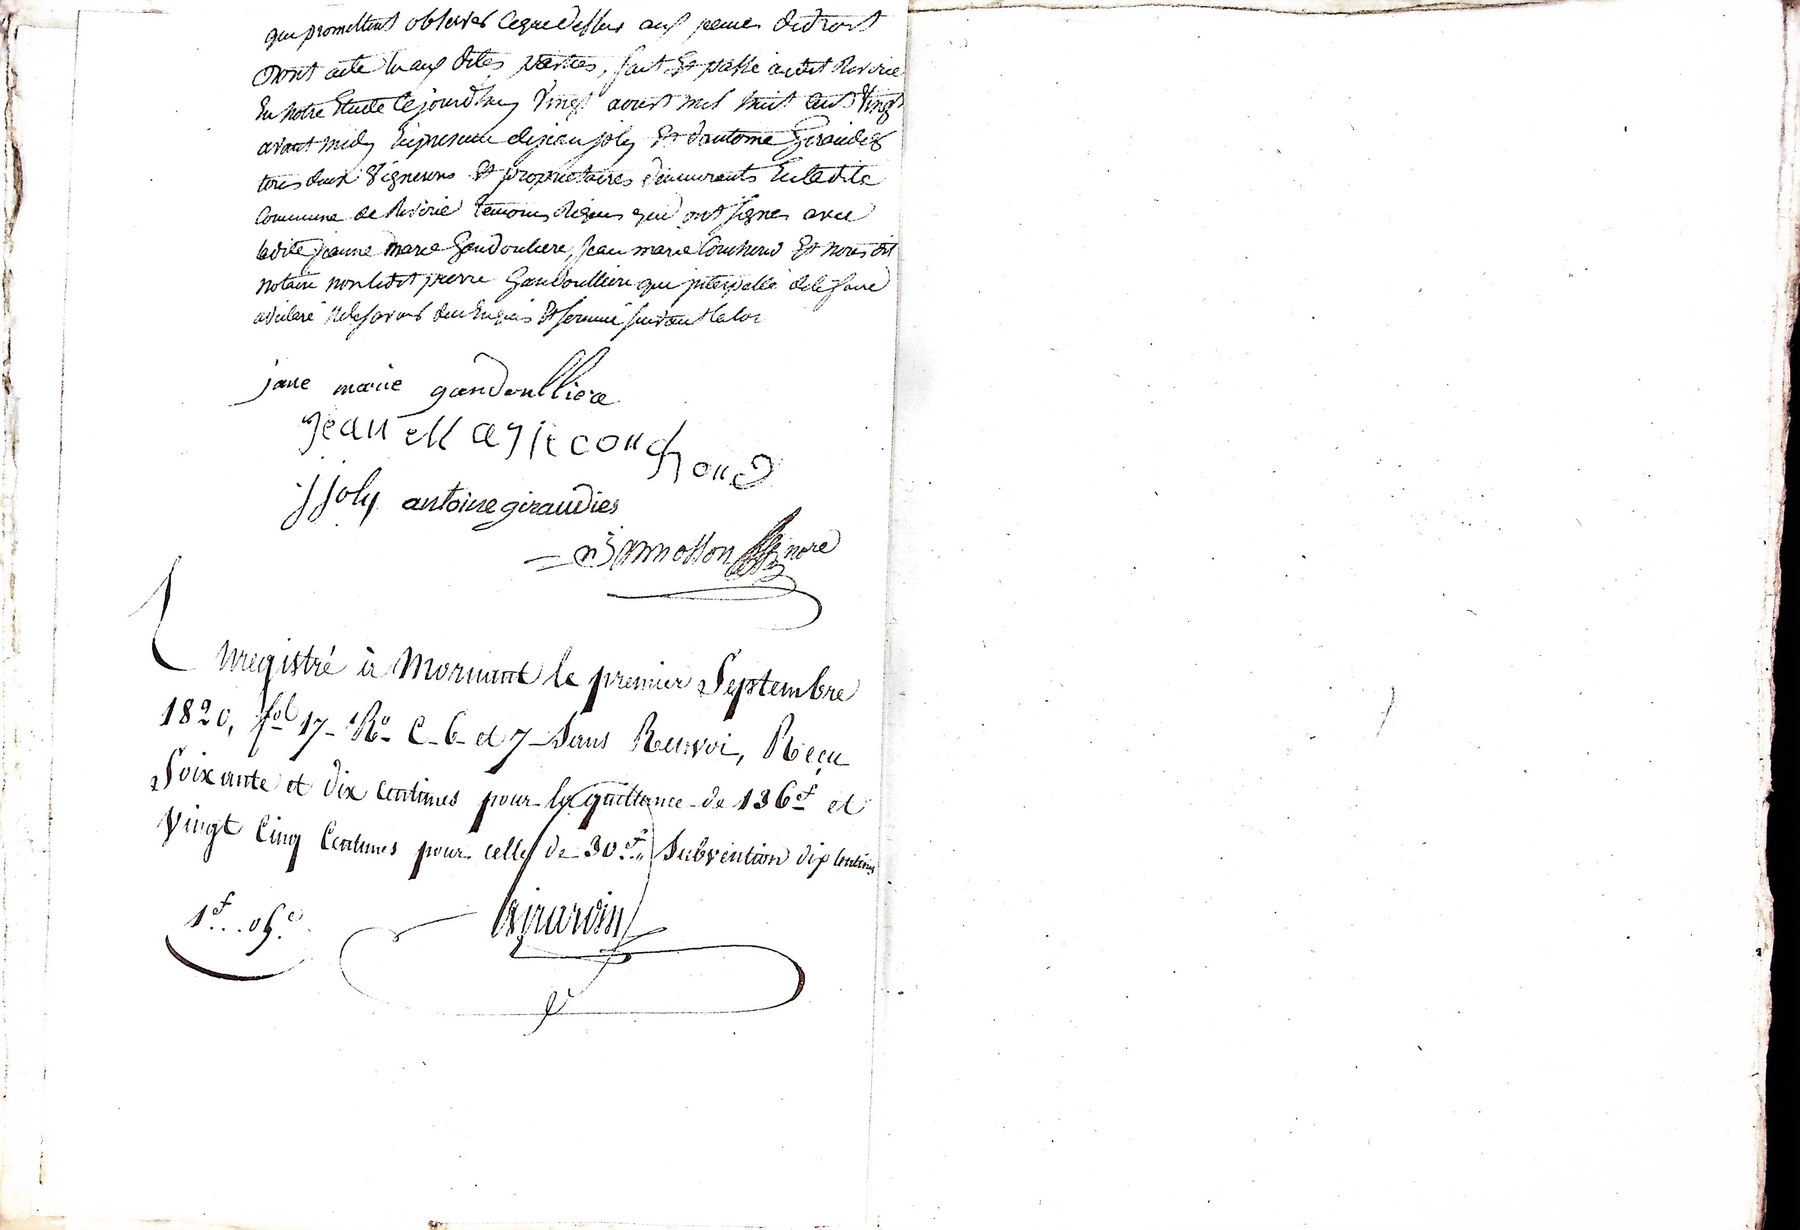 qui promettent observer ce que dessus aux peines de droit
Dont acte lu aux dites parties, fait et passé audit Riverie
en notre Etude Cejourdhuy vingt aoust mil huit cent vingt
avant midy En presence de jean joly et d'antoine Giraudier
tous deux vignerons et proprietaires demeurants En ladite
Commune de Riverie temoins Requis qui ont signes avec
ladite jeanne marie Gandouliere, jean marie Couchoud et nous dit
notaire non ledit pierre Gandoulliere qui interpellé de le faire
a declaré ne le savoir de ce Enquis et sommé suivant la loi
jane marie gandoulliere
jean Marie couchoud
j joly antoine giraudier
nore
Enregistré à Mornant le premier Septembre
1820, fol 17 Ro C. 6 et 7 Sans Renvoi, Reçu
Soixante et dix centimes pour la quittance de 136f et
Vingt Cinq Centimes pour celle de 30f Subvention dix centimes
1f. 05c
Girardin